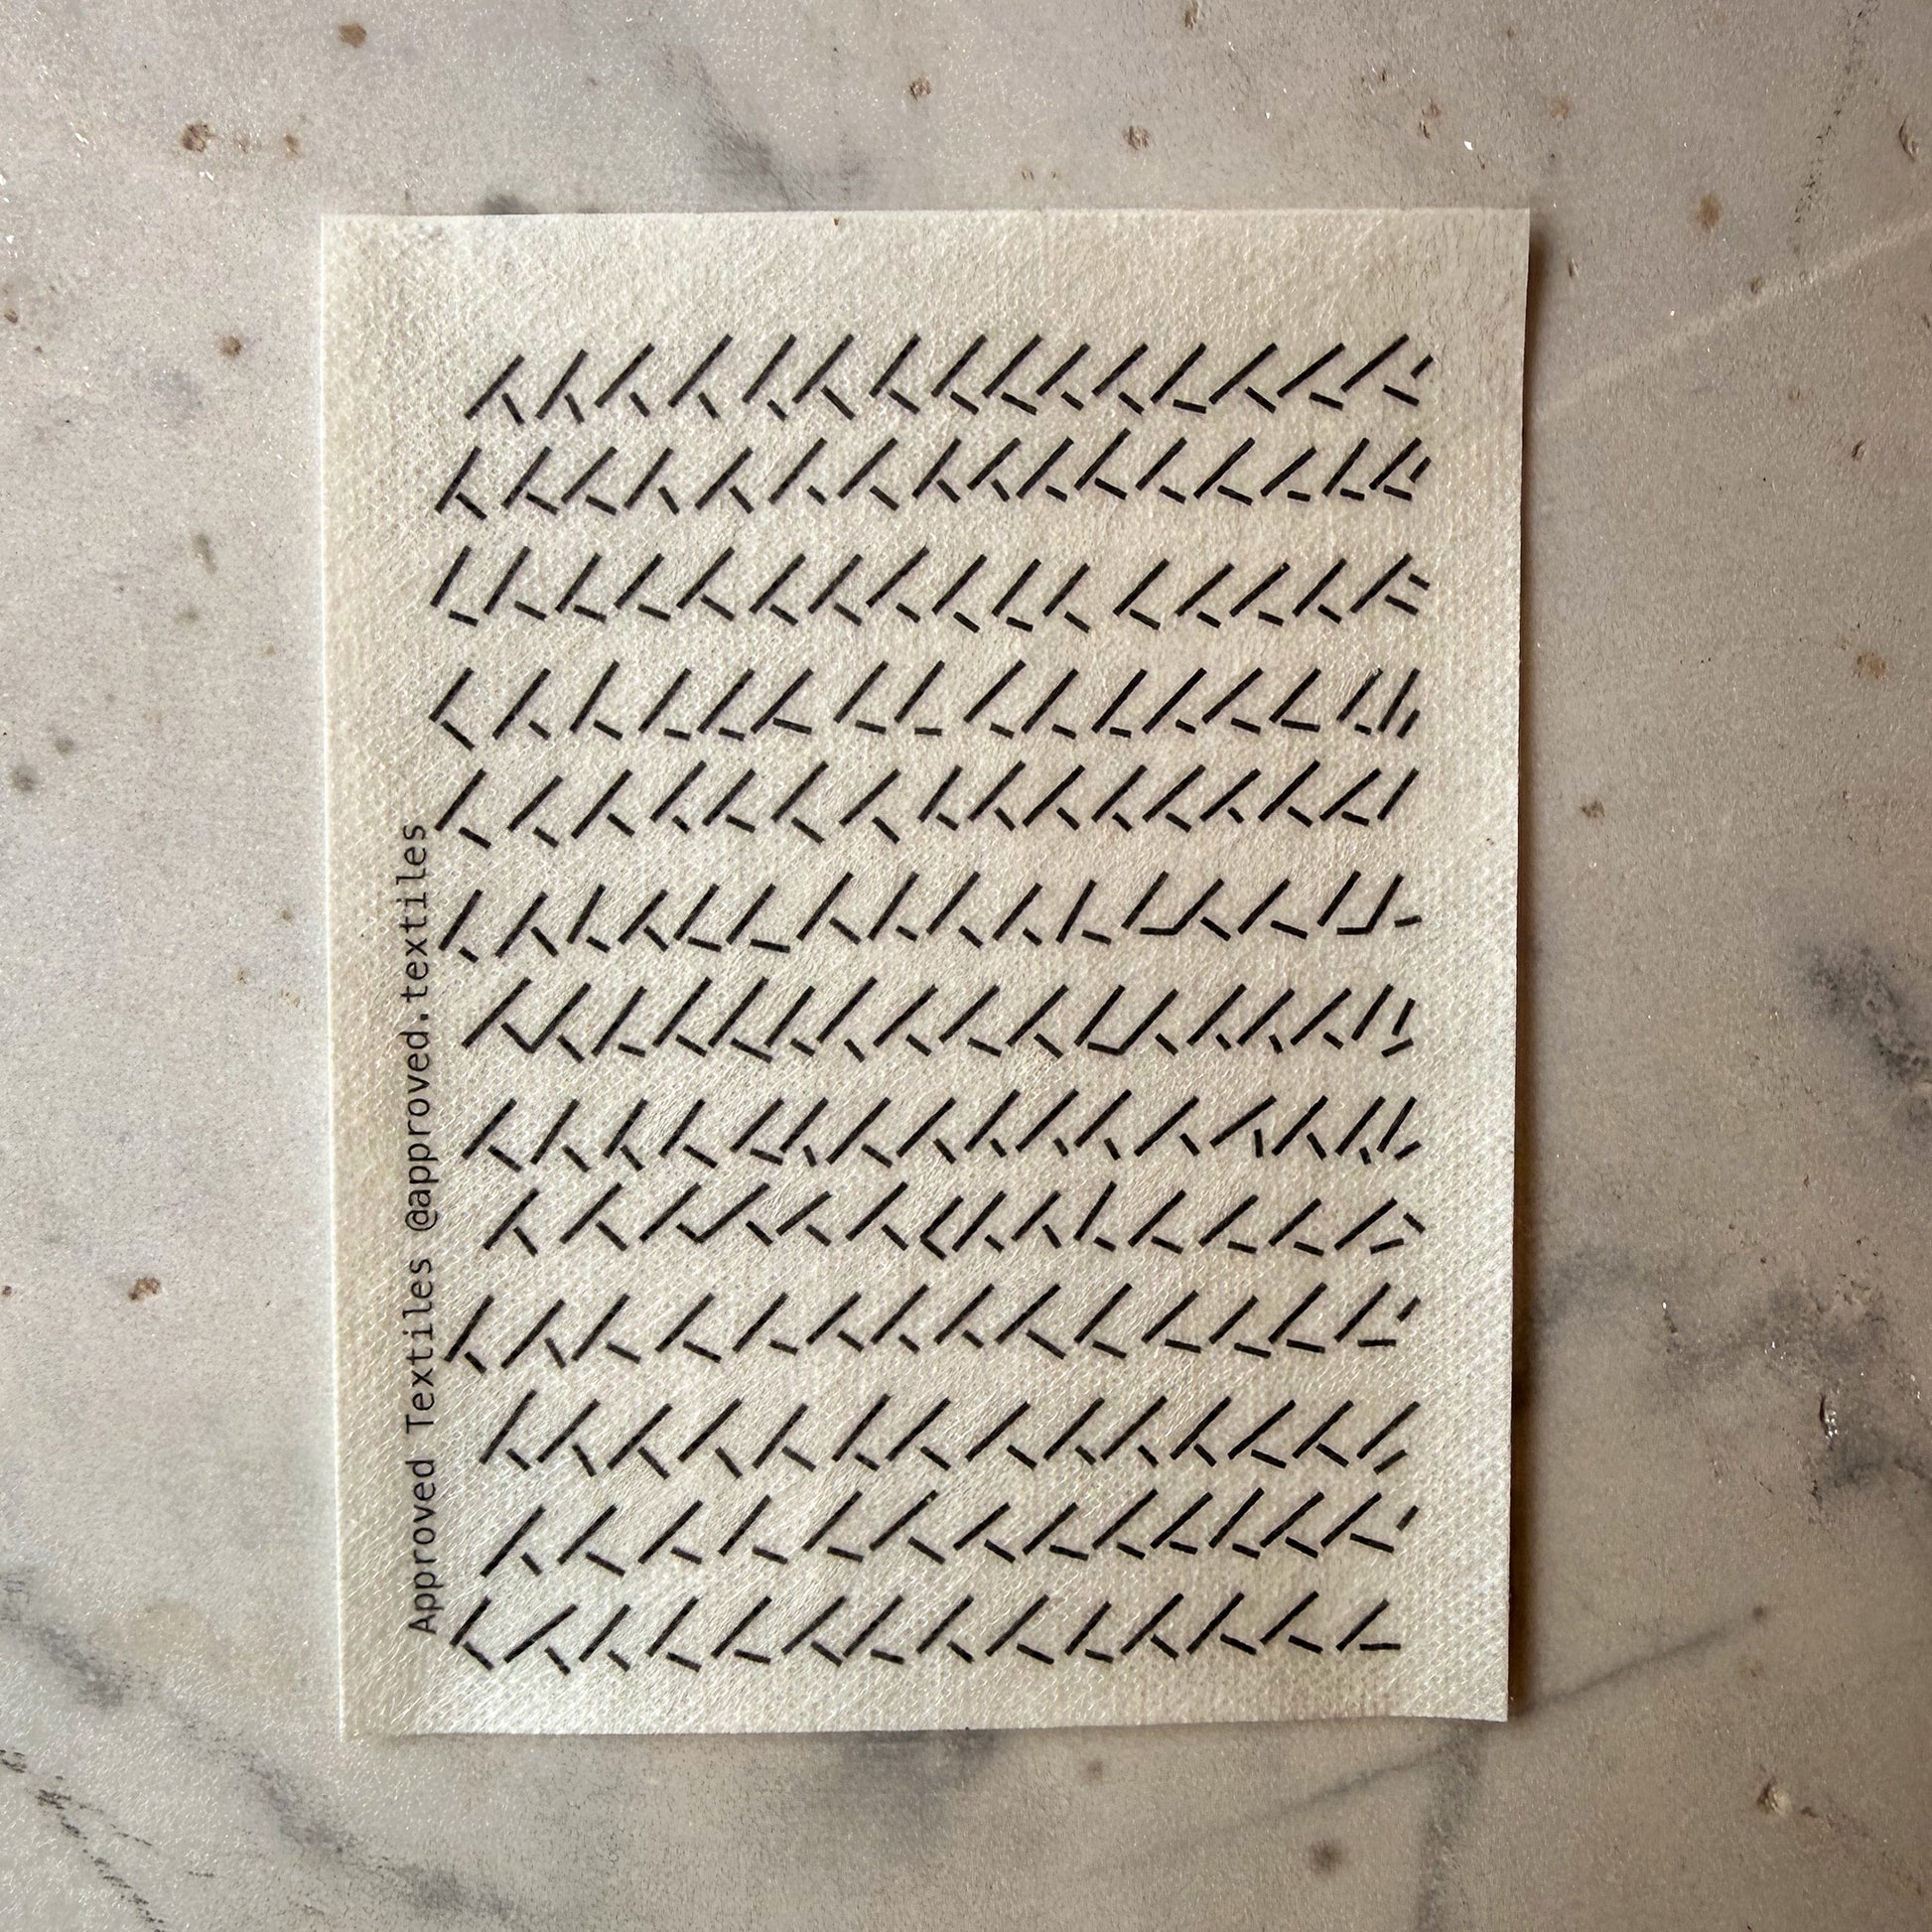 Approved Textiles @approved.textiles